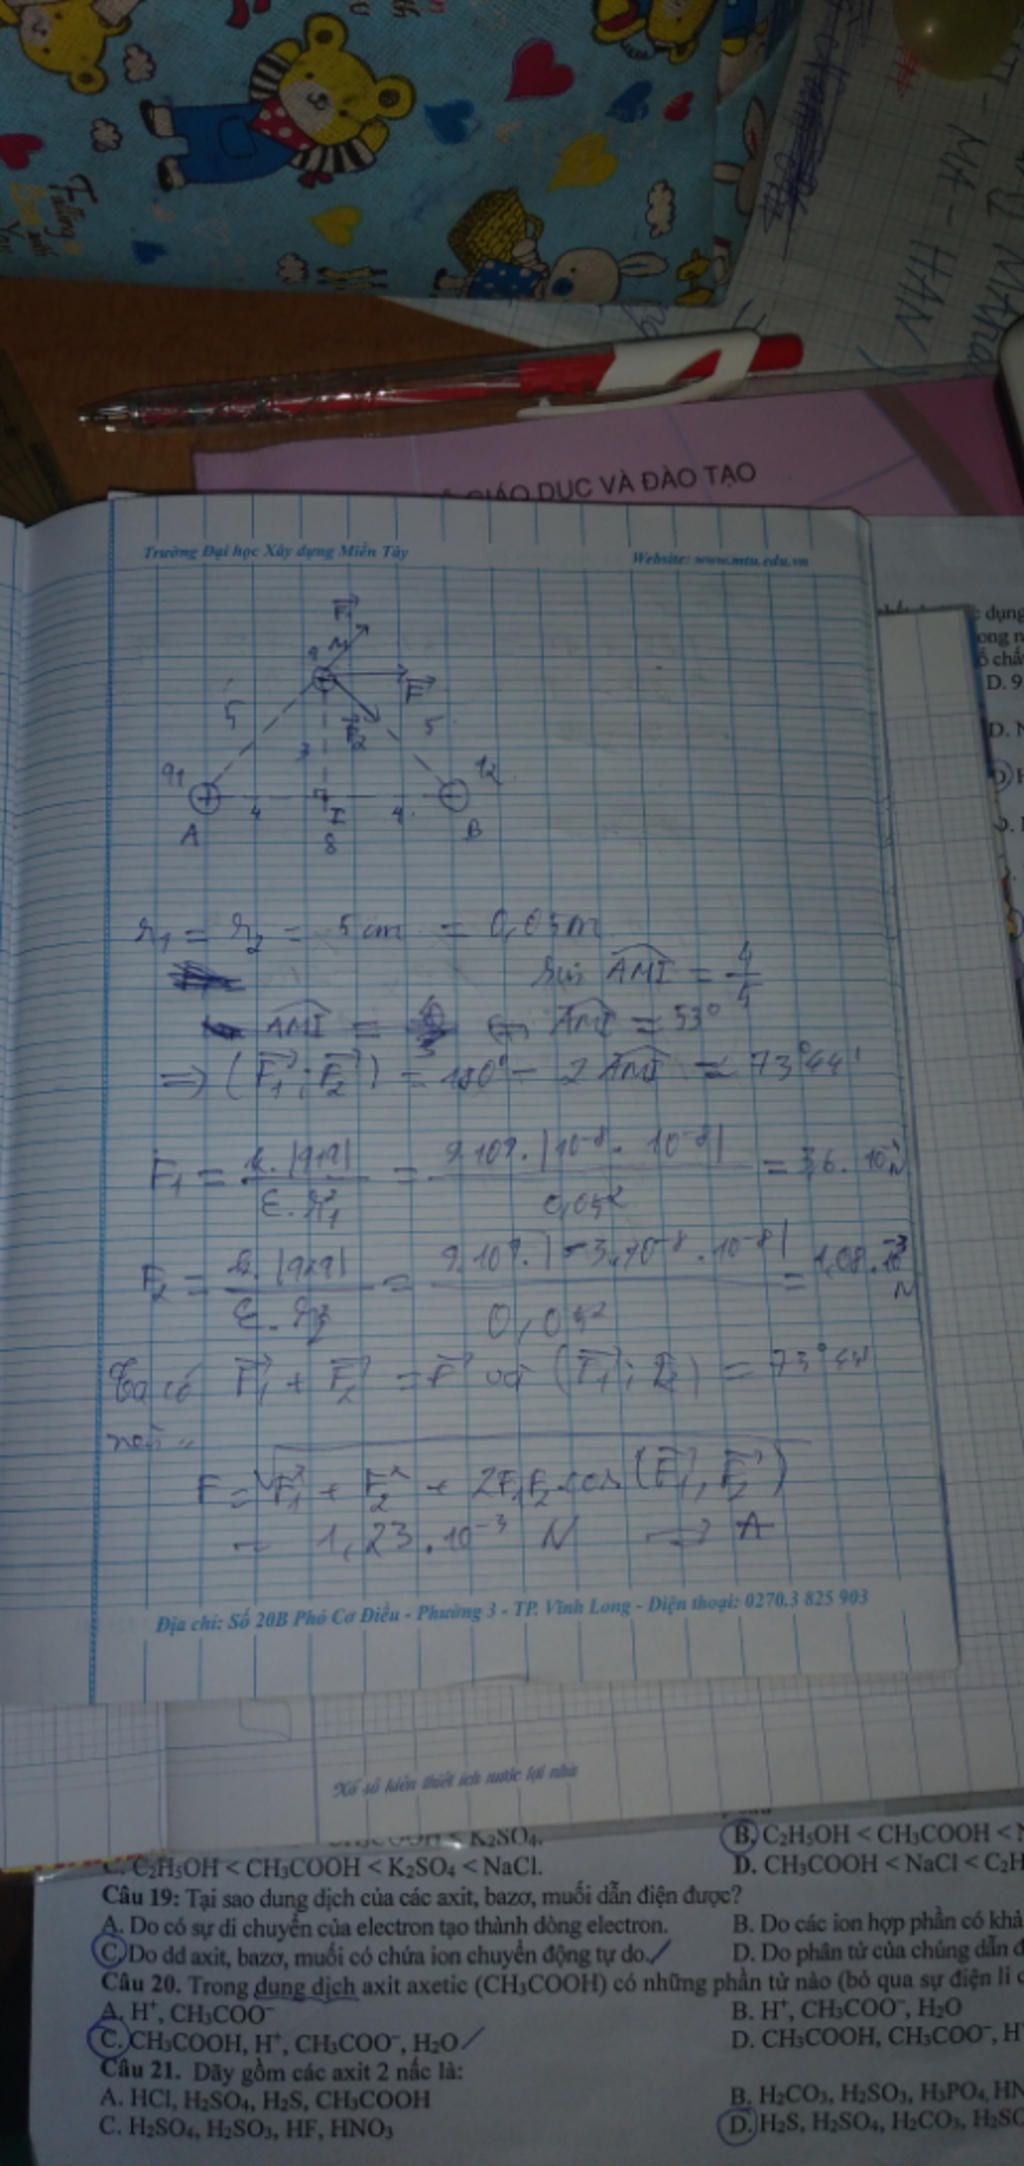 Falling
MA - HAN
GIÁO DỤC VÀ ĐÀO TẠO
Trường Đại học Xây dựng Miền Tây
Website: www.mtu.edu.vn
F₁
M
F
F₂
5
5
3
q1
q2
A
4
I
4
B
8
r₁ = r₂ = 5 cm = 0,05m
sin AMI = 4/5
AMI = ⇔ AMI = 53°
⇒ (F₁; F₂) = 180° - 2 AMI = 73°44'
F₁ = k.|q1q| / ε.r₁² = 9.10⁹.|10⁻⁸.10⁻⁸| / 0,05² = 3,6.10 N
F₂ = k.|q2q| / ε.r₂² = 9.10⁹.|-3.10⁻⁸.10⁻⁸| / 0,05² = 1,08.10⁻³ N
Ta có F₁ + F₂ = F và (F₁; F₂) = 73°44'
nên
F = √F₁² + F₂² + 2F₁F₂.cos(F₁, F₂)
= 1,23.10⁻³ N → A
Địa chỉ: Số 20B Phó Cơ Điều - Phường 3 - TP. Vĩnh Long - Điện thoại: 0270.3 825 903
Xổ số kiến thiết ích nước lợi nhà
dụng
D. 9
K₂SO₄.
B. C₂H₅OH < CH₃COOH <
C. C₂H₅OH < CH₃COOH < K₂SO₄ < NaCl.
D. CH₃COOH < NaCl < C₂H
Câu 19: Tại sao dung dịch của các axit, bazơ, muối dẫn điện được?
A. Do có sự di chuyển của electron tạo thành dòng electron.
B. Do các ion hợp phần có khả
C. Do dd axit, bazơ, muối có chứa ion chuyển động tự do.
D. Do phân tử của chúng dẫn đ
Câu 20. Trong dung dịch axit axetic (CH₃COOH) có những phần tử nào (bỏ qua sự điện li c
A. H⁺, CH₃COO⁻
B. H⁺, CH₃COO⁻, H₂O
C. CH₃COOH, H⁺, CH₃COO⁻, H₂O
D. CH₃COOH, CH₃COO⁻, H⁺
Câu 21. Dãy gồm các axit 2 nấc là:
A. HCl, H₂SO₄, H₂S, CH₃COOH
B. H₂CO₃, H₂SO₃, H₃PO₄, HN
C. H₂SO₄, H₂SO₃, HF, HNO₃
D. H₂S, H₂SO₄, H₂CO₃, H₂SO